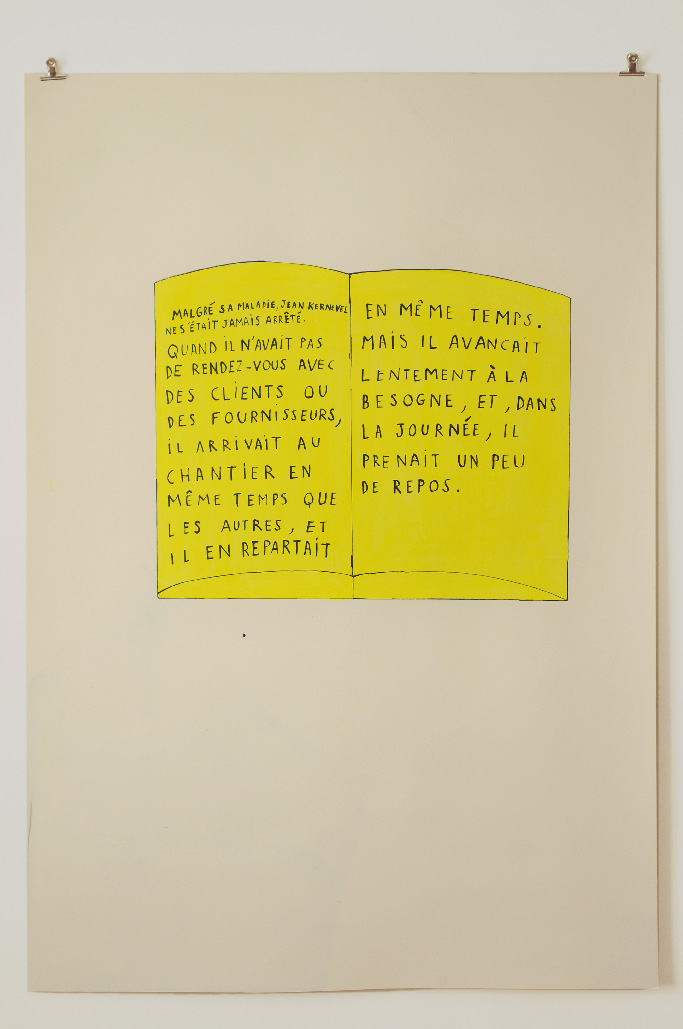 MALGRÉ SA MALADIE, JEAN KERNEVEL
NE S'ÉTAIT JAMAIS ARRÊTÉ.
QUAND IL N'AVAIT PAS
DE RENDEZ-VOUS AVEC
DES CLIENTS OU
DES FOURNISSEURS,
IL ARRIVAIT AU
CHANTIER EN
MÊME TEMPS QUE
LES AUTRES, ET
IL EN REPARTAIT
EN MÊME TEMPS.
MAIS IL AVANCAIT
LENTEMENT À LA
BESOGNE, ET, DANS
LA JOURNÉE, IL
PRENAIT UN PEU
DE REPOS.